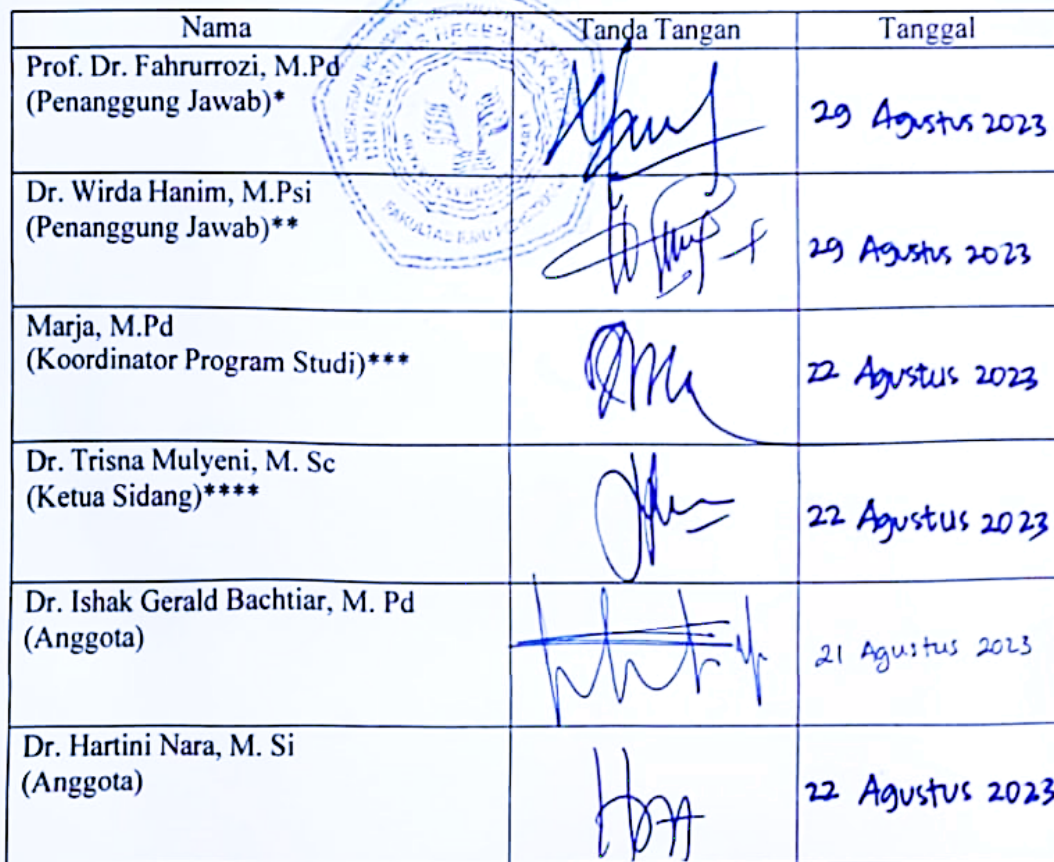 Nama Tanda Tangan Tanggal
Prof. Dr. Fahrurrozi, M.Pd
(Penanggung Jawab)*
29 Agustus 2023
Dr. Wirda Hanim, M.Psi
(Penanggung Jawab)**
29 Agustus 2023
Marja, M.Pd
(Koordinator Program Studi)***
22 Agustus 2023
Dr. Trisna Mulyeni, M. Sc
(Ketua Sidang)****
22 Agustus 2023
Dr. Ishak Gerald Bachtiar, M. Pd
(Anggota)
21 Agustus 2023
Dr. Hartini Nara, M. Si
(Anggota)
22 Agustus 2023